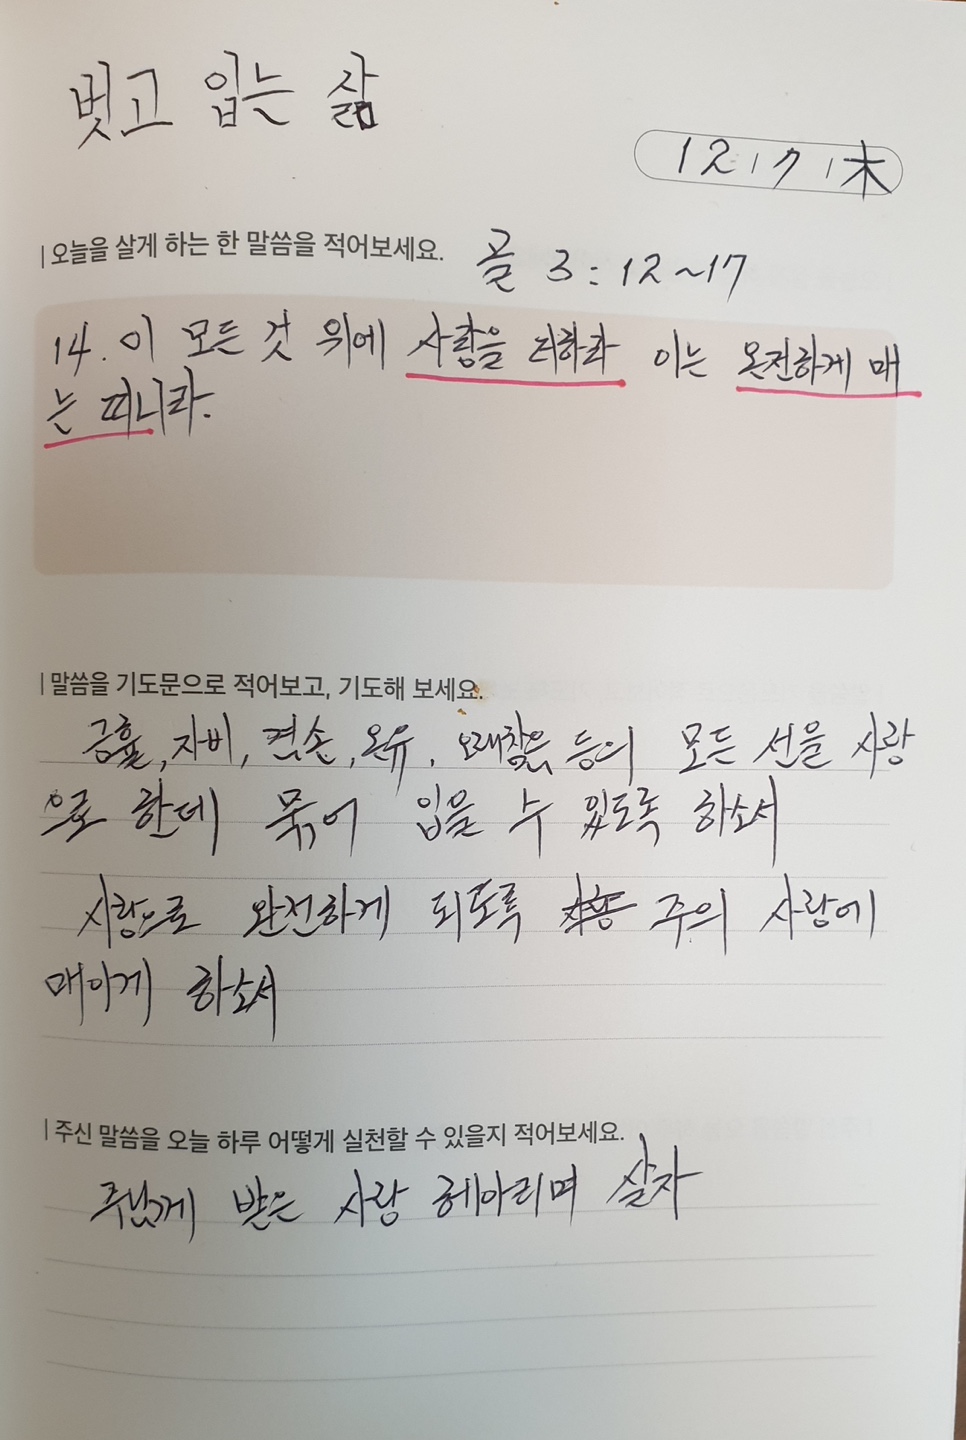 벗고 입는 삶
12 / 7 / 木
오늘을 살게 하는 한 말씀을 적어보세요.
골 3 : 12 ~ 17
14. 이 모든 것 위에 사랑을 더하라 이는 온전하게 매
는 띠니라.
말씀을 기도문으로 적어보고, 기도해 보세요.
긍휼, 자비, 겸손, 온유, 오래참음 등의 모든 선을 사랑
으로 한데 묶어 입을 수 있도록 하소서
사랑으로 완전하게 되도록 주의 사랑에
매이게 하소서
주신 말씀을 오늘 하루 어떻게 실천할 수 있을지 적어보세요.
주님께 받은 사랑 헤아리며 살자